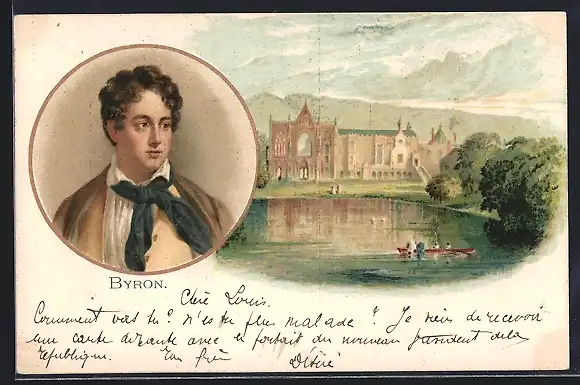 BYRON.
Cher Louis.
Comment vas tu? n'es tu plus malade? Je viens de recevoir
une carte avec le portait du nouveau president de la
république. Ton frère Désiré